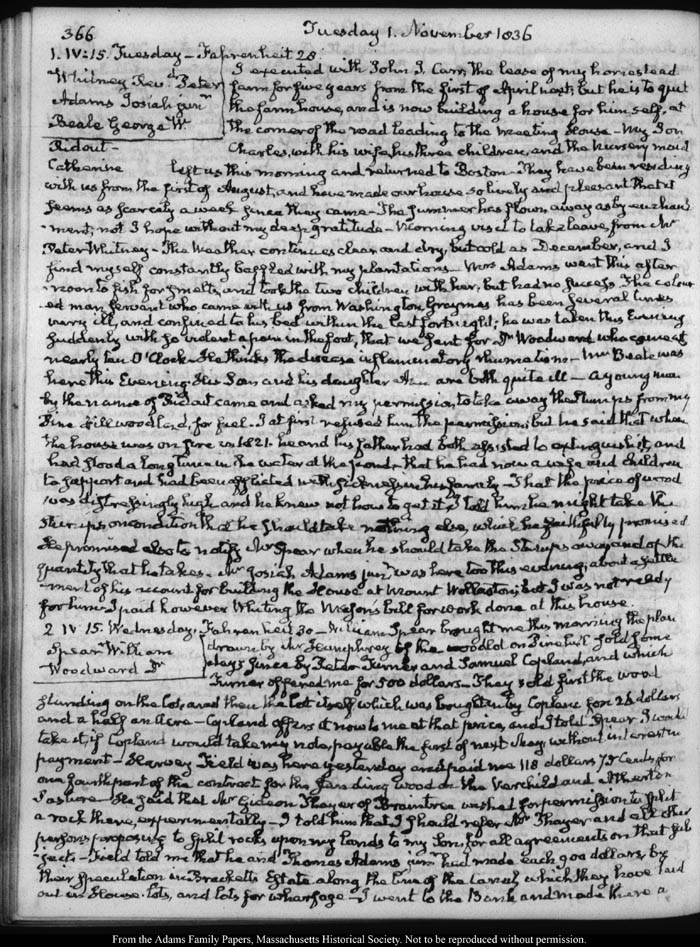 366
Tuesday 1. November 1836
1. IV:15. Tuesday — Fahrenheit 28
Whitney Revd. Peter
Adams Josiah junr
Beale George W.
Ridout —
Catherine
I executed with John J. Carr, the lease of my homestead
farm for five years from the first of April next; but he is to quit
the farm house, and is now building a house for himself, at
the corner of the road leading to the Meeting House — My Son
Charles, with his wife, his three children, and the nursery maid
left us this morning and returned to Boston — They have been residing
with us from the first of August, and have made our house so lively and pleasant that it
seems as scarcely a week since they came — The summer has flown away as by enchant-
ment; not I hope without my deep gratitude — Morning visit to take leave from Mr
Peter Whitney — The Weather continues clear and dry, but cold as December, and I
find myself constantly baffled with my plantations — Mrs Adams went this after-
noon to fish for smelts, and took the two children with her, but had no success. The colour-
ed man servant who came with us from Washington, Graymes has been several times
very ill, and confined to his bed within the last fortnight; he was taken this Evening
suddenly with so violent a pain in the foot, that we sent for Dr Woodward who came at
nearly ten O'Clock — He thinks the disease inflammatory rheumatism — Mr Beale was
here this Evening. His Son and his daughter Ann are both quite ill — A young man
by the name of Ridout came and asked my permission to take away the stumps from my
Pine hill wood land, for fuel — I at first refused him the permission; but he said that when
the house was on fire in 1821. he and his father had both assisted to extinguish it, and
had stood a long time in the water at the pond — that he had now a wife and children
to support and had been afflicted with sickness in his family — That the price of wood
was distressingly high and he knew not how to get it, I told him he might take the
stumps on condition that he should take nothing else, which he faithfully promised
He promised also to notify Mr Spear when he should take the Stumps away and of the
quantity that he takes — Mr Josiah Adams junr was here too this evening, about a settle-
ment of his account for building the House at Mount Wollaston; but I was not ready
for him — I paid however Whiting the Mason's bill for work done at this house.
2 IV:15. Wednesday. Fahrenheit 30 — William Spear brought me this morning the plan
Spear William
Woodward Dr
drawn by Mr Humphrey of the woodlot on Pine hill sold some
days since by Peter Turner and Samuel Copeland, and which
Turner offered me for 500 dollars — They sold first the wood
standing on the lots, and then the lot itself which was bought in by Copland for 28 dollars
and a half an Acre — Copland offers it now to me at that price, and I told Spear I would
take it, if Copland would take my note, payable the first of next May without interest in
payment — Harvey Field was here yesterday and paid me 118 dollars 75 Cents for
one fourth part of the contract for the standing wood on the Verchild and Atherton
Pasture — He said that Mr Gideon Thayer of Braintree wished for permission to split
a rock there, experimentally — I told him that I should refer Mr Thayer and all other
persons proposing to split rocks upon my lands to my Son, for all agreements on that sub-
ject — Field told me that he and Thomas Adams junr had made each 900 dollars by
their speculation in Bracketts Estate along the line of the Canal which they have laid
out in House lots, and lots for wharfage — I went to the Bank and made there a
From the Adams Family Papers, Massachusetts Historical Society. Not to be reproduced without permission.